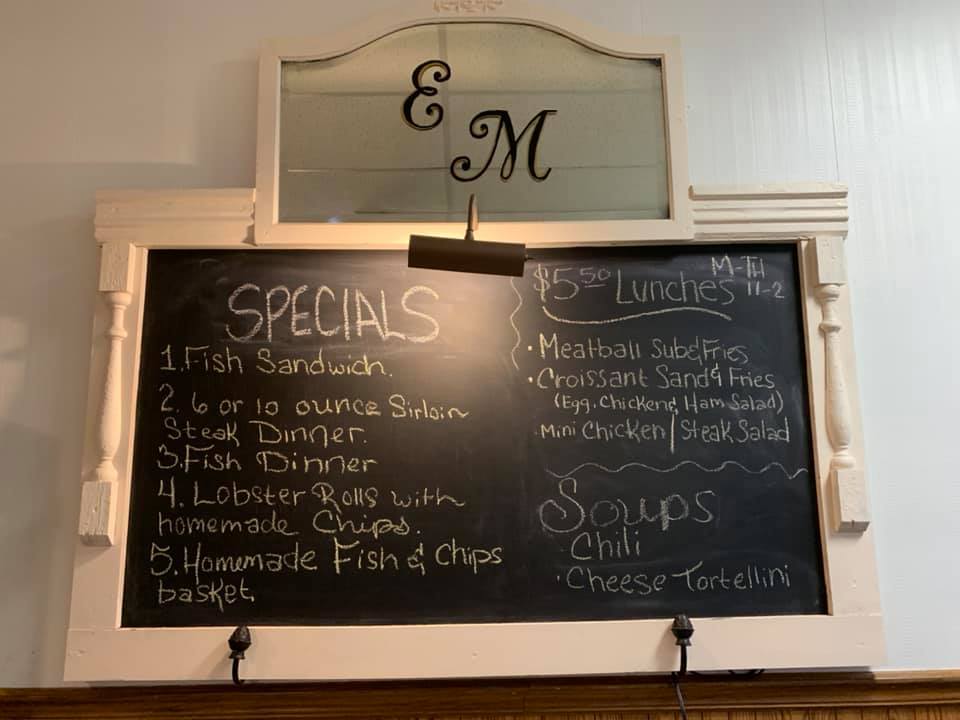 E
M
SPECIALS
1. Fish Sandwich.
2. 6 or 10 ounce Sirloin
Steak Dinner.
3. Fish Dinner
4. Lobster Rolls with
homemade Chips.
5. Homemade Fish & Chips
basket.
$5.50 Lunches M-TH
11-2
• Meatball Sub & Fries
• Croissant Sand & Fries
(Egg, Chicken & Ham Salad)
• Mini Chicken / Steak Salad
Soups
• Chili
• Cheese Tortellini